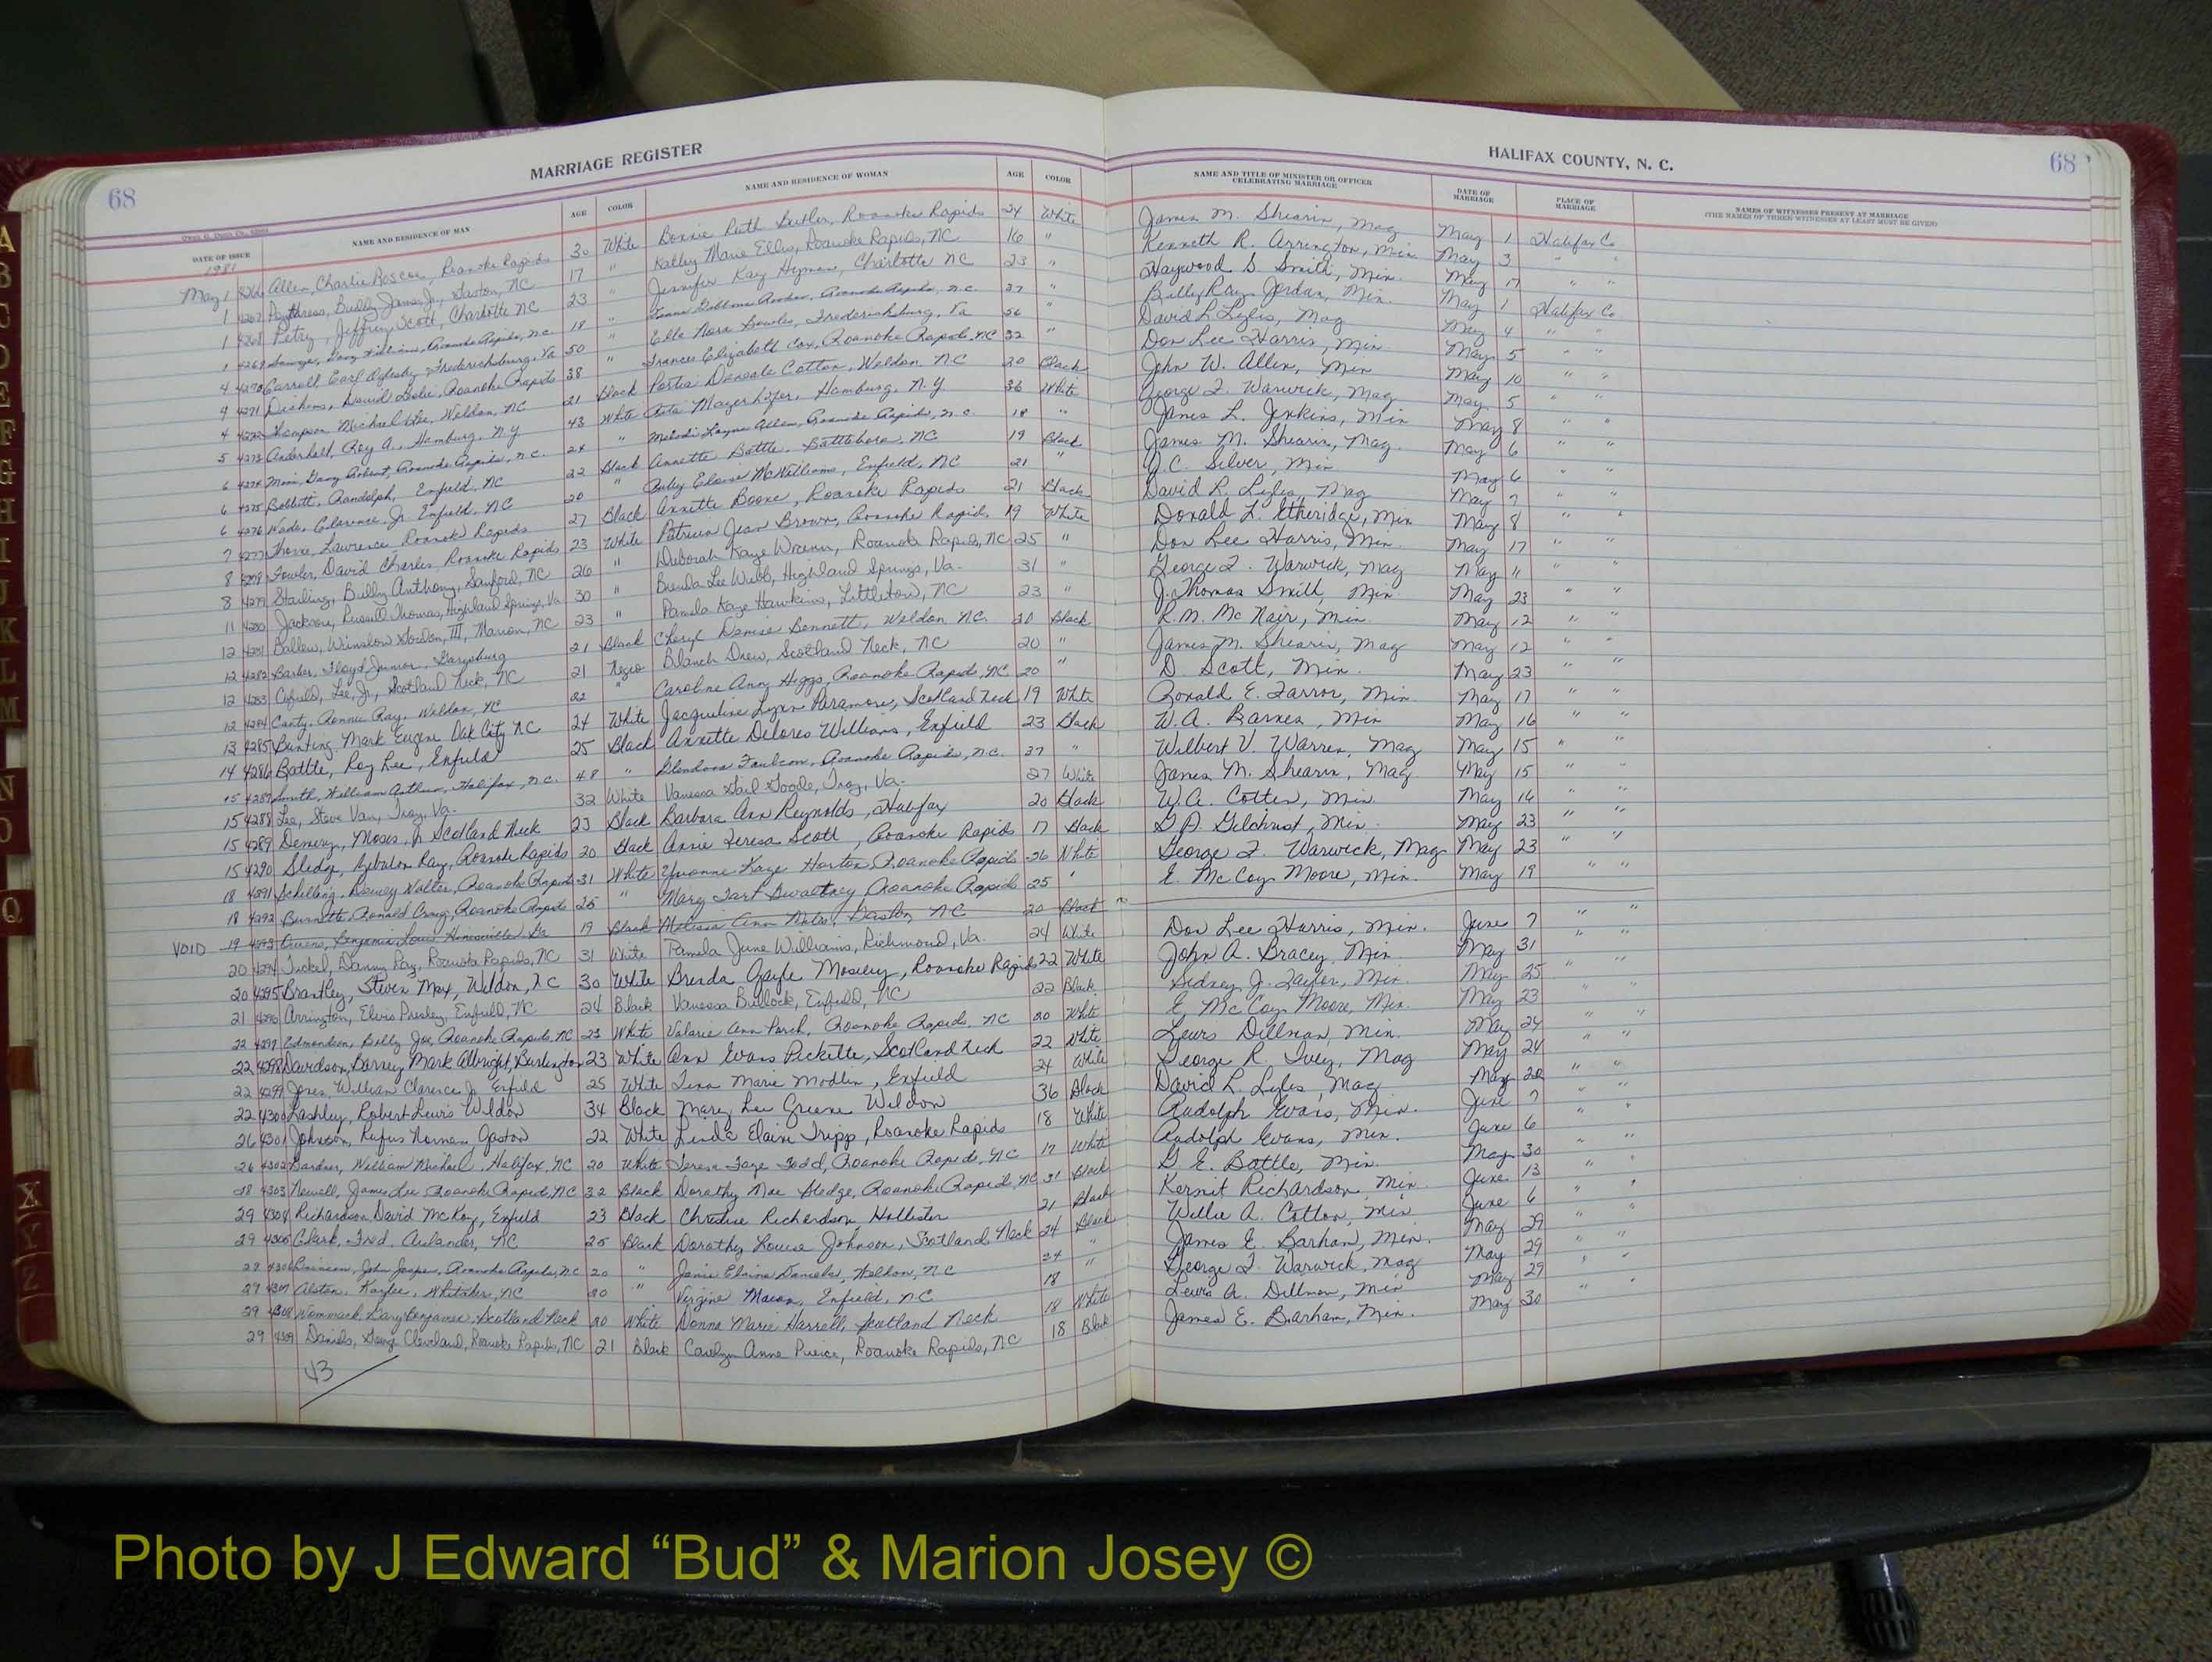 68
MARRIAGE REGISTER
HALIFAX COUNTY, N. C.
68
DATE OF ISSUE NAME AND RESIDENCE OF MAN AGE COLOR NAME AND RESIDENCE OF WOMAN AGE COLOR NAME AND TITLE OF MINISTER OR OFFICER CELEBRATING MARRIAGE DATE OF MARRIAGE PLACE OF MARRIAGE NAMES OF WITNESSES PRESENT AT MARRIAGE
(THE NAMES OF THREE WITNESSES AT LEAST MUST BE GIVEN)
1981
May 1 4266 Allen, Charlie Roscoe, Roanoke Rapids 30 White Bonnie Ruth Butler, Roanoke Rapids 24 White James M. Shearin, Mag May 1 Halifax Co
1 4267 Buddy James, Jr., Gaston, NC 17 " Kathy Marie Ellis, Roanoke Rapids, NC 16 " Kenneth R. Arrington, Min May 3 " "
1 4268 Petry, Jeffrey Scott, Charlotte NC 23 " Jennifer Kay Hyman, Charlotte NC 23 " Haywood S. Smith, Min. May 17 " "
1 4269 Roanoke Rapids, NC 18 " Roanoke Rapids, N.C. 27 " Billy Ray Jordan, Min. May 1 Halifax Co
4 4270 Carroll, Earl Oglesby, Fredericksburg, Va 50 " Ella Nora Fredericksburg, Va 56 " David L Lyles, Mag May 4 " "
4 4271 Dickens, David Leslie, Roanoke Rapids 38 " Frances Elizabeth Cox, Roanoke Rapids, NC 32 " Don Lee Harris, Min May 5 " "
4 4272 Thompson Michael Lee, Weldon, NC 21 Black Portia Cotton, Weldon NC 20 Black John W. Allen, Min May 10 " "
5 4273 Roy A., Hamburg, N.Y 43 White Hamburg, N.Y 36 White George T. Warwick, Mag May 5 " "
6 4274 Robert, Roanoke Rapids, N.C. 24 " Melodi Layne Allen, Roanoke Rapids, N.C. 18 " James L. Jenkins, Min May 8 " "
6 4275 Bobbitt, Randolph, Enfield, NC 22 Black Annette Battle, Battleboro, NC 19 Black James M. Shearin, Mag. May 6 " "
6 4276 Wade, Clarence, Jr. Enfield, NC 20 " Ruby Eloise McWilliams, Enfield, NC 21 " J.C. Silver, Min May 6 " "
7 4277 Thorne, Lawrence, Roanoke Rapids 27 Black Annette Boone, Roanoke Rapids 21 Black David L. Lyles, Mag May 7 " "
8 4278 Fowler, David Charles Roanoke Rapids 23 White Patricia Jean Brown, Roanoke Rapids 19 White Donald L. Etheridge, Min May 8 " "
8 4279 Starling, Billy Anthony, Sanford, NC 26 " Deborah Kaye Roanoke Rapids, NC 25 " Don Lee Harris, Min. May 17 " "
11 4280 Jackson, Russell Thomas, Highland Springs, Va 30 " Brenda Lee Webb, Highland Springs, Va. 31 " George T. Warwick, Mag May 11 " "
12 4281 Ballew, Winslow Gordon, III, Marion, NC 23 " Pamela Kaye Hawkins, Littleton, NC 23 " J. Thomas Smith, Min. May 23 " "
12 4282 Barber, Floyd Junior, Garysburg 21 Black Cheryl Denise Bennett, Weldon NC. 20 Black R.M. McNair, Min. May 12 " "
12 4283 Cofield, Lee, Jr., Scotland Neck, NC 21 Negro Blanch Drew, Scotland Neck, NC 20 " James M. Shearin, Mag May 12 " "
12 4284 Canty, Ronnie Ray, Weldon, NC 22 " Caroline Ann Higgs, Roanoke Rapids, NC 20 " D. Scott, Min. May 23 " "
13 4285 Bunting, Mark Eugene Oak City NC 24 White Jacqueline Lynn Paramore, Scotland Neck 19 White Ronald E. Min May 17 " "
14 4286 Battle, Roy Lee, Enfield 25 Black Annette Delores Williams, Enfield 23 Black W.A. Barnes, Min May 16 " "
15 4287 Smith, William Arthur, Halifax, N.C. 48 " Glendora Faulcon, Roanoke Rapids, N.C. 37 " Wilbert V. Warren, Mag May 15 " "
15 4288 Lee, Steve Van, Troy, Va. 32 White Vanessa Gail Goode, Troy, Va. 27 White James M. Shearin, Mag May 15 " "
15 4289 Demery, Moses, Jr Scotland Neck 23 Black Barbara Ann Reynolds, Halifax 20 Black W.A. Cotten, Min May 16 " "
15 4290 Sledge, Ray, Roanoke Rapids 20 Black Annie Teresa Scott, Roanoke Rapids 17 Black Gilchrist, Min. May 23 " "
18 4291 Schilling, Dewey Walter, Roanoke Rapids 31 White Yvonne Kaye Horton, Roanoke Rapids 26 White George T. Warwick, Mag May 23 " "
18 4292 Burnette, Ronald Craig, Roanoke Rapids 25 " Mary Tart Gwaltney Roanoke Rapids 25 " E. McCoy Moore, Min. May 19 " "
VOID 19 4293 Benjamin Louis, Hinesville Ga 19 Black Melissa Ann Gaston, NC 20 Black
20 4294 Tickel, Danny Ray, Roanoke Rapids, NC 31 White Pamela June Williams, Richmond, Va. 24 White Don Lee Harris, Min. June 7 " "
20 4295 Brantley, Steven Max, Weldon, NC 30 White Brenda Gayle Moseley, Roanoke Rapids 22 White John A. Bracey, Min. May 31 " "
21 4296 Arrington, Elvis Presley, Enfield, NC 24 Black Vanessa Bullock, Enfield, NC 22 Black Sidney J. Min. May 25 " "
22 4297 Edmondson, Billy Joe, Roanoke Rapids, NC 23 White Valarie Ann Roanoke Rapids, NC 20 White E. McCoy Moore, Min. May 23 " "
22 4298 Davidson, Barney Mark Albright, Burlington 23 White Ann Evans Pickette, Scotland Neck 22 White Lewis Dillman, Min. May 24 " "
22 4299 Jones, William Clarence Jr Enfield 25 White Tina Marie Modlin, Enfield 24 White George R. Ivey, Mag May 24 " "
22 4300 Lashley, Robert Lewis Weldon 34 Black Mary Lee Greene Weldon 36 Black David L. Lyles, Mag May 22 " "
26 4301 Johnson, Rufus Norman, Gaston 22 White Linda Elaine Tripp, Roanoke Rapids 18 White Rudolph Evans, Min. June 7 " "
26 4302 Gardner, William Michael, Halifax, NC 20 White Teresa Faye Todd, Roanoke Rapids, NC 17 White Rudolph Evans, Min. June 6 " "
28 4303 Newell, James Lee Roanoke Rapids, NC 32 Black Dorothy Mae Sledge, Roanoke Rapids, NC 31 Black G. E. Battle, Min. May 30 " "
29 4304 Richardson David McKoy, Enfield 23 Black Christine Richardson, Hollister 21 Black Kermit Richardson, Min. June 13 " "
29 4305 Clark, Fred, Aulander, NC 25 Black Dorothy Louise Johnson, Scotland Neck 24 Black Willie A. Cotton, Min June 6 " "
29 4306 John Jasper, Roanoke Rapids, NC 20 " Janie Elaine Daniels, Weldon, NC 24 " James E. Barham, Min. May 29 " "
29 4307 Alston, Whitakers, NC 20 " Macon, Enfield, NC 18 " George T. Warwick, Mag May 29 " "
29 4308 Wommack, Gary Benjamin, Scotland Neck 20 White Donna Marie Harrell, Scotland Neck 18 White Lewis A. Dillman, Min May 29 " "
29 4309 Daniels, Cleveland, Roanoke Rapids, NC 21 Black Carolyn Anne Pierce, Roanoke Rapids, NC 18 Black James E. Barham, Min. May 30
43
A
B
C
D
E
F
G
H
I
J
K
L
M
N
O
Q
X
Y
Z
Photo by J Edward “Bud” & Marion Josey ©